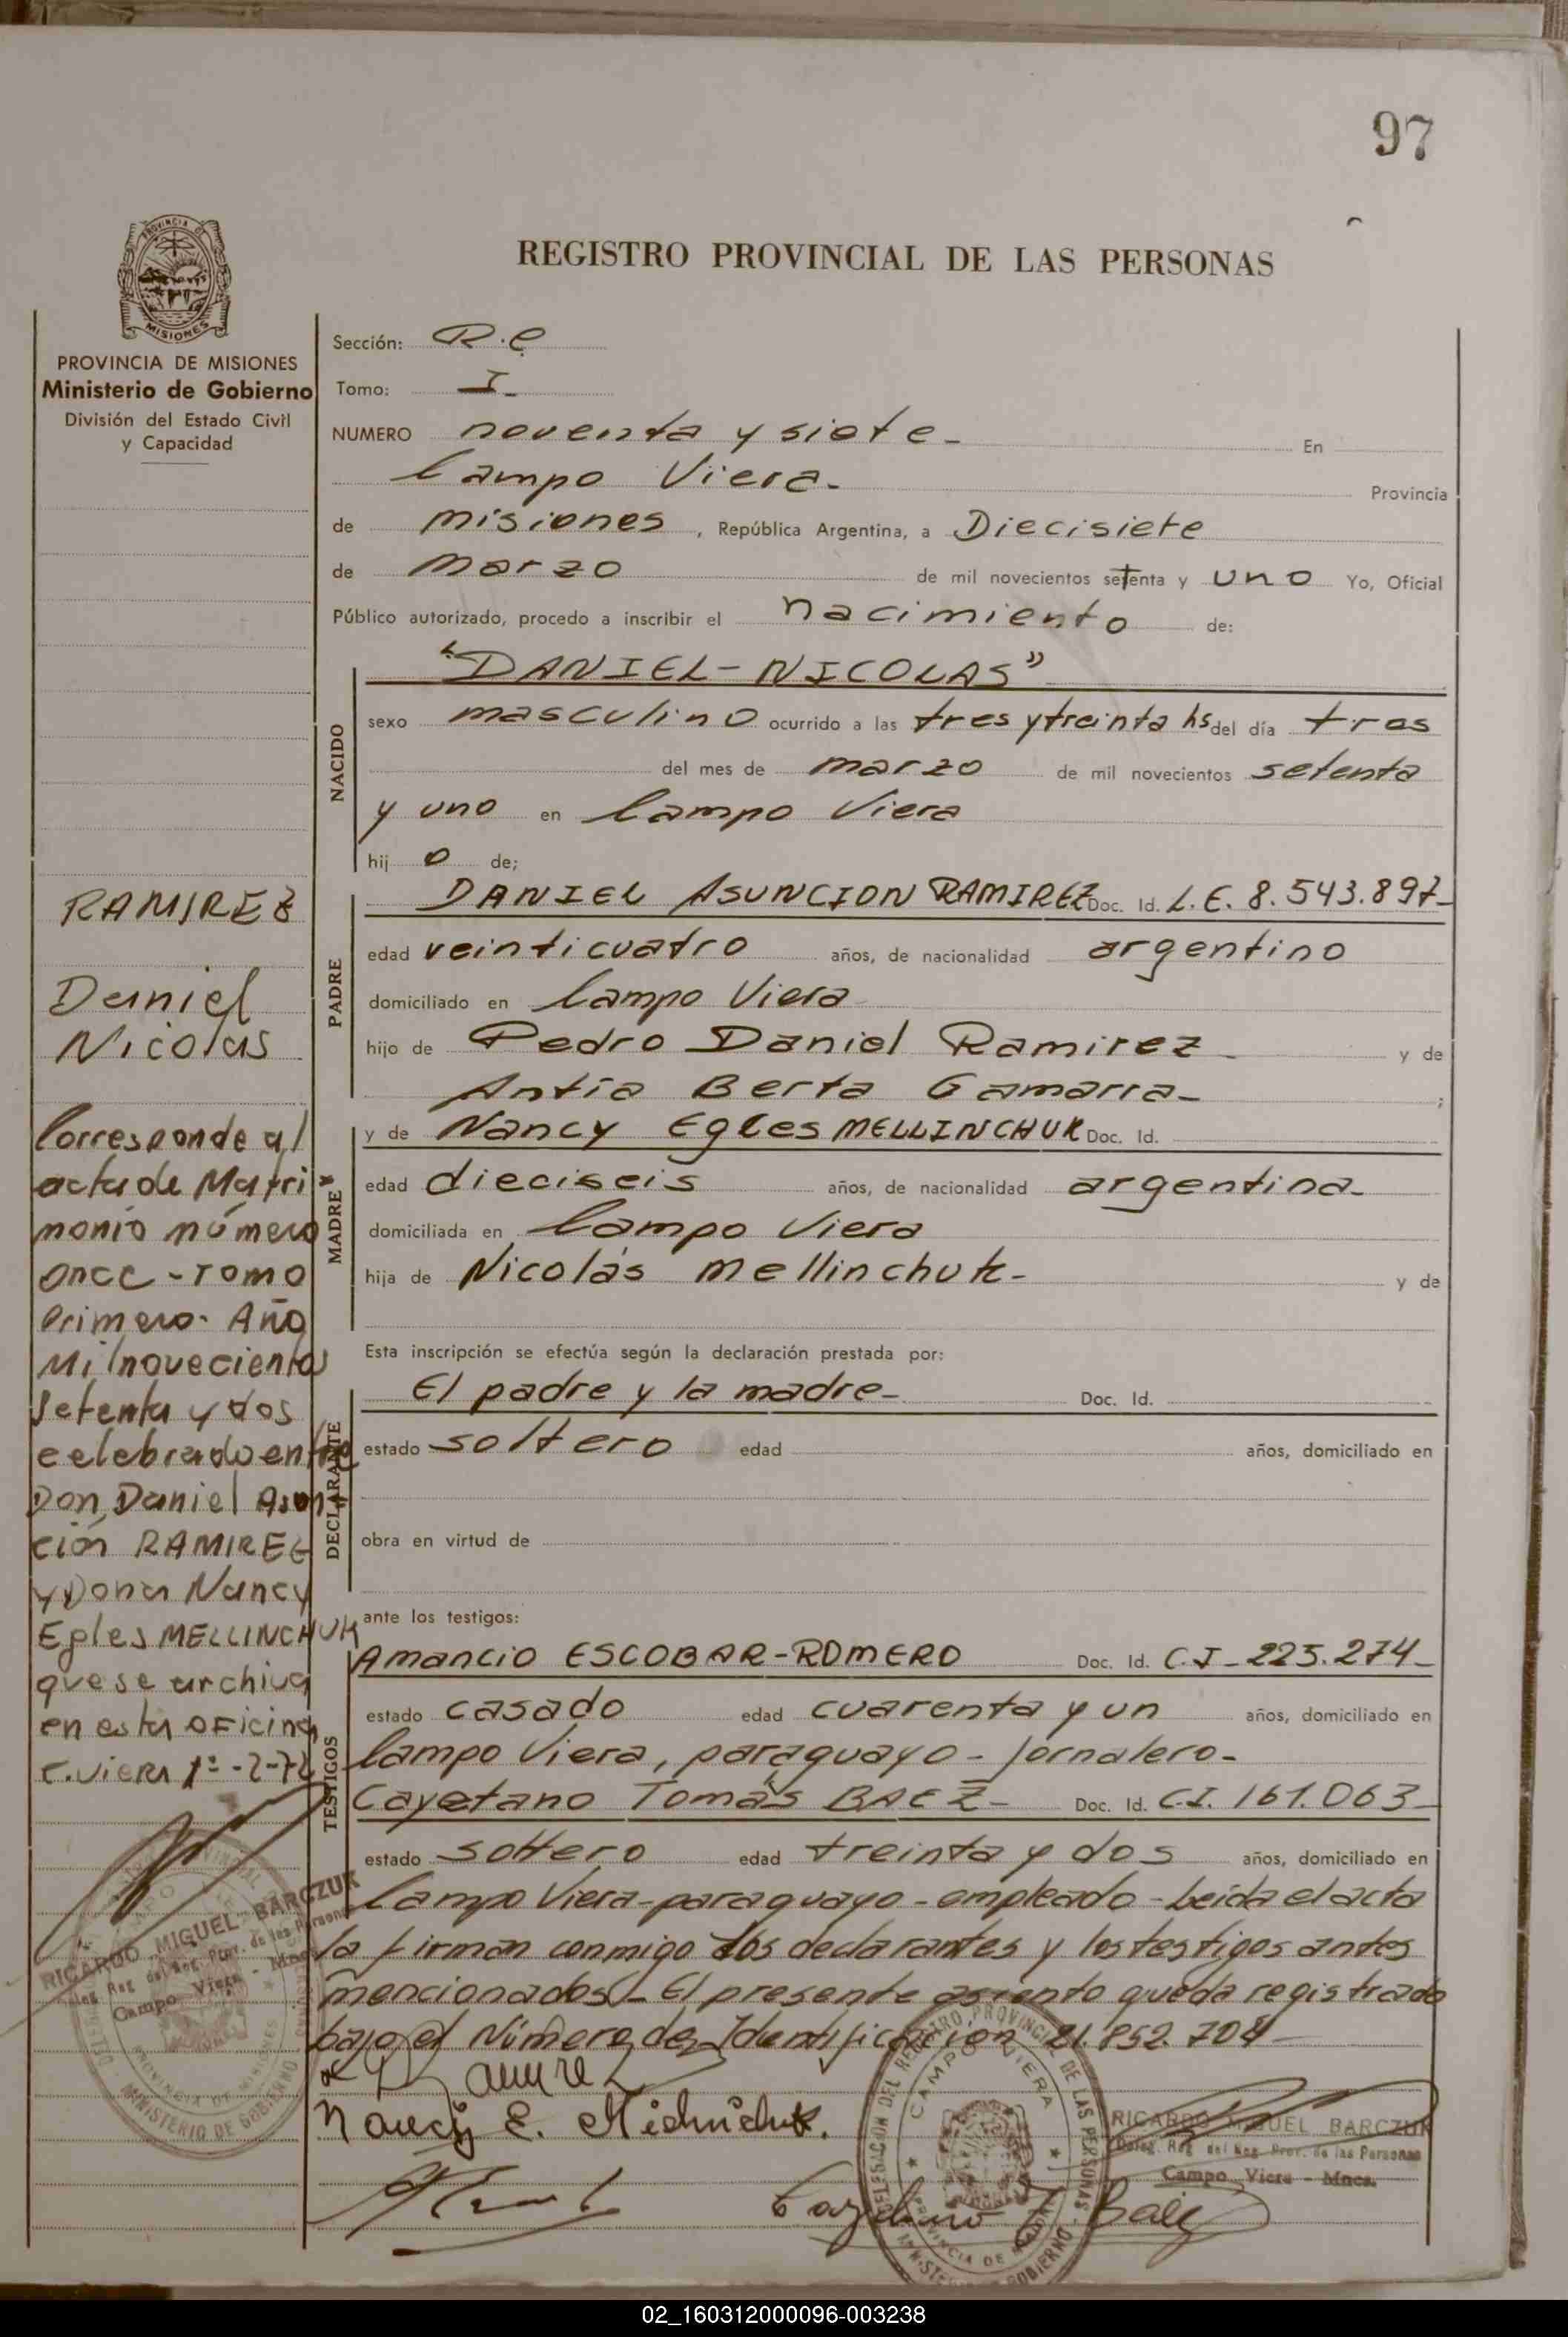 97
REGISTRO PROVINCIAL DE LAS PERSONAS
PROVINCIA DE MISIONES
Ministerio de Gobierno
División del Estado Civil
y Capacidad
RAMIREZ
Daniel
Nicolas
Corresponde al
acta de Matri
monio número
once - Tomo
Primero. Año
Mil novecientos
setenta y dos
celebrado entre
Don Daniel Asun
ción RAMIREZ
y Dona Nancy
Egles MELLINCHUK
que se archiva
en esta oficina
C. Viera 1º-2-72
RICARDO MIGUEL BARCZUK
Campo Viera - Mnes.
Sección: R.C
Tomo: I
NUMERO noventa y siete - En
Campo Viera - Provincia
de misiones, República Argentina, a Diecisiete
de marzo de mil novecientos setenta y uno Yo, Oficial
Público autorizado, procedo a inscribir el nacimiento de:
"DANIEL-NICOLAS"
NACIDO
sexo masculino ocurrido a las tres y treinta hs del día tres
del mes de marzo de mil novecientos setenta
y uno en Campo Viera
hij o de;
PADRE
DANIEL ASUNCION RAMIREZ Doc. Id. L.E. 8.543.897-
edad veinticuatro años, de nacionalidad argentino
domiciliado en Campo Viera
hijo de Pedro Daniel Ramirez - y de
Antia Berta Gamarra- ;
MADRE
y de Nancy Egles MELLINCHUK Doc. Id.
edad dieciseis años, de nacionalidad argentina-
domiciliada en Campo Viera
hija de Nicolás Mellinchuk- y de
Esta inscripción se efectúa según la declaración prestada por:
DECLARANTE
El padre y la madre- Doc. Id.
estado soltero edad años, domiciliado en
obra en virtud de
ante los testigos:
TESTIGOS
Amancio ESCOBAR-ROMERO Doc. Id. C.I-225.274-
estado casado edad cuarenta y un años, domiciliado en
Campo Viera, paraguayo - jornalero-
Cayetano Tomás BAEZ- Doc. Id. C.I. 161.063-
estado soltero edad treinta y dos años, domiciliado en
Campo Viera-paraguayo-empleado-Leida el acta
la firman conmigo los declarantes y los testigos antes
mencionados- El presente asiento queda registrado
bajo el Número de Identificación 21.852.704-
Nancy E.
RICARDO MIGUEL BARCZUK
Deleg. Reg. del Reg. Prov. de las Personas
Campo Viera - Mnes.
DELEGACION DEL REGISTRO PROVINCIAL DE LAS PERSONAS
CAMPO VIERA
PROVINCIA DE MISIONES
MINISTERIO DE GOBIERNO
02_160312000096-003238